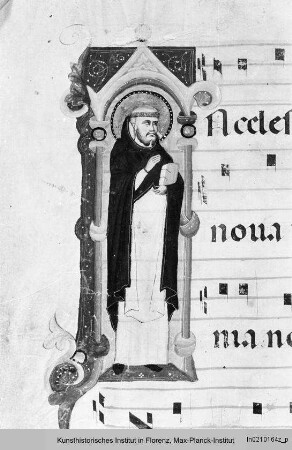 Accles
noua
ma no
Kunsthistorisches Institut in Florenz, Max-Planck-Institut
ln0210164z_p